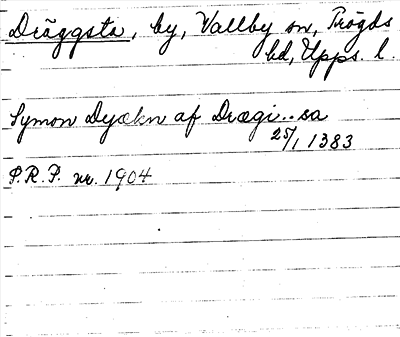 Dräggsta, by, Vallby sn, Trögds
hd, Upps. l.
Symon Dyækn af Drægi..sa
25/1 1383
P.R.P. nr. 1904